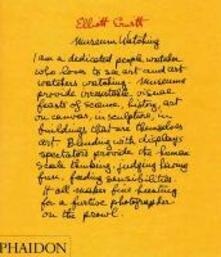 Elliott Erwitt
Museum Watching
I am a dedicated people watcher
who loves to see art and art
watchers watching. Museums
provide irresistible visual
feasts of science, history, art
on canvas, in sculpture, in
buildings that are themselves
art. Blending with displays
spectators provide the human
scale thinking, judging, having
fun, feeding sensibilities.
It all makes fine hunting
for a furtive photographer
on the prowl.
PHAIDON